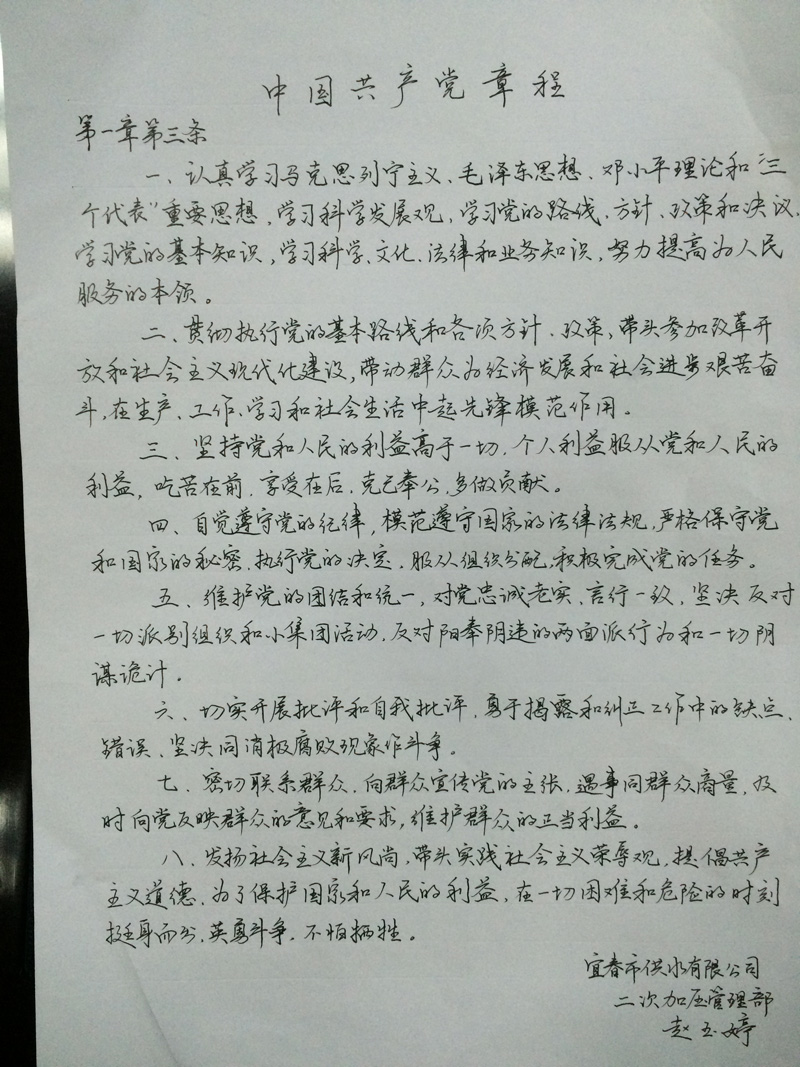 中国共产党章程
第一章第三条
一、认真学习马克思列宁主义、毛泽东思想、邓小平理论和“三
个代表”重要思想,学习科学发展观,学习党的路线、方针、政策和决议,
学习党的基本知识,学习科学、文化、法律和业务知识,努力提高为人民
服务的本领。
二、贯彻执行党的基本路线和各项方针、政策,带头参加改革开
放和社会主义现代化建设,带动群众为经济发展和社会进步艰苦奋
斗,在生产、工作、学习和社会生活中起先锋模范作用。
三、坚持党和人民的利益高于一切,个人利益服从党和人民的
利益,吃苦在前,享受在后,克己奉公,多做贡献。
四、自觉遵守党的纪律,模范遵守国家的法律法规,严格保守党
和国家的秘密,执行党的决定,服从组织分配,积极完成党的任务。
五、维护党的团结和统一,对党忠诚老实,言行一致,坚决反对
一切派别组织和小集团活动,反对阳奉阴违的两面派行为和一切阴
谋诡计。
六、切实开展批评和自我批评,勇于揭露和纠正工作中的缺点、
错误,坚决同消极腐败现象作斗争。
七、密切联系群众,向群众宣传党的主张,遇事同群众商量,及
时向党反映群众的意见和要求,维护群众的正当利益。
八、发扬社会主义新风尚,带头实践社会主义荣辱观,提倡共产
主义道德,为了保护国家和人民的利益,在一切困难和危险的时刻
挺身而出,英勇斗争,不怕牺牲。
宜春市供水有限公司
二次加压管理部
赵玉婷